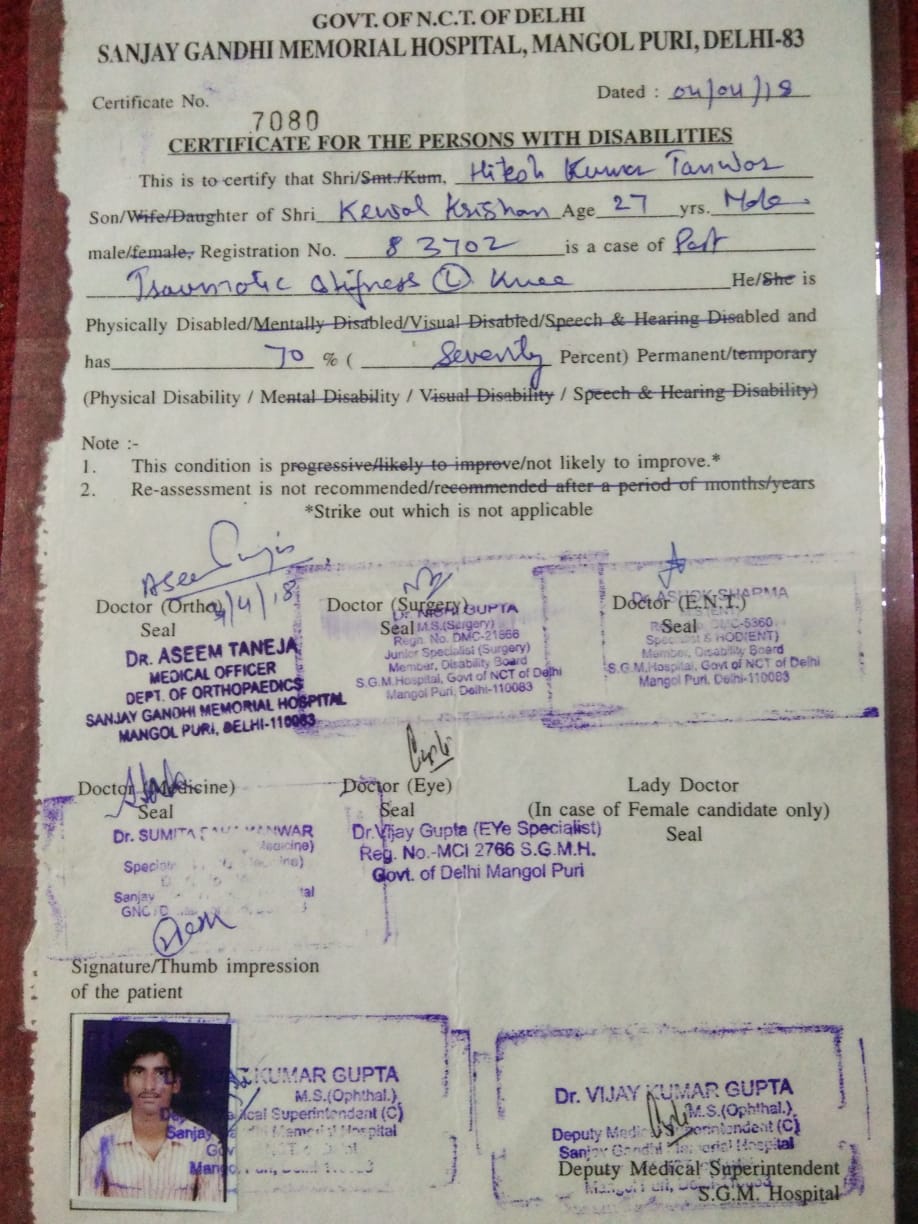 GOVT. OF N.C.T. OF DELHI
SANJAY GANDHI MEMORIAL HOSPITAL, MANGOL PURI, DELHI-83
Certificate No. 7080
Dated : 04/04/18
CERTIFICATE FOR THE PERSONS WITH DISABILITIES
This is to certify that Shri/Smt./Kum, Hitesh Kumar Tanwar
Son/Wife/Daughter of Shri Kewal Krishan Age 27 yrs. Male
male/female, Registration No. 83702 is a case of Post
Traumatic stifness (L) knee He/She is
Physically Disabled/Mentally Disabled/Visual Disabled/Speech & Hearing Disabled and
has 70 % ( Seventy Percent) Permanent/temporary
(Physical Disability / Mental Disability / Visual Disability / Speech & Hearing Disability)
Note :-
1. This condition is progressive/likely to improve/not likely to improve.*
2. Re-assessment is not recommended/recommended after a period of months/years
*Strike out which is not applicable
Doctor (Ortho) 4/4/18
Seal
DR. ASEEM TANEJA
MEDICAL OFFICER
DEPT. OF ORTHOPAEDICS
SANJAY GANDHI MEMORIAL HOSPITAL
MANGOL PURI, DELHI-110083
Doctor (Surgery)
Seal
GUPTA
M.S.(Surgery)
Regn. No. DMC-21866
Junior Specialist (Surgery)
Member, Disability Board
S.G.M.Hospital, Govt of NCT of Delhi
Mangol Puri, Delhi-110083
Doctor (E.N.T.)
Seal
Dr. ASHOK SHARMA
DMC-5360
Specialist & HOD(ENT)
Member, Disability Board
S.G.M.Hospital, Govt of NCT of Delhi
Mangol Puri, Delhi-110083
Doctor (Medicine)
Seal
Dr. SUMITA
Sanjay
Doctor (Eye)
Seal
Dr.Vijay Gupta (EYe Specialist)
Reg. No.-MCI 2766 S.G.M.H.
Govt. of Delhi Mangol Puri
Lady Doctor
(In case of Female candidate only)
Seal
Signature/Thumb impression
of the patient
KUMAR GUPTA
M.S.(Ophthal.)
Medical Superintendent (C)
Sanjay Gandhi Memorial Hospital
Dr. VIJAY KUMAR GUPTA
M.S.(Ophthal.)
Deputy Medical Superintendent (C)
Sanjay Gandhi Memorial Hospital
Deputy Medical Superintendent
S.G.M. Hospital